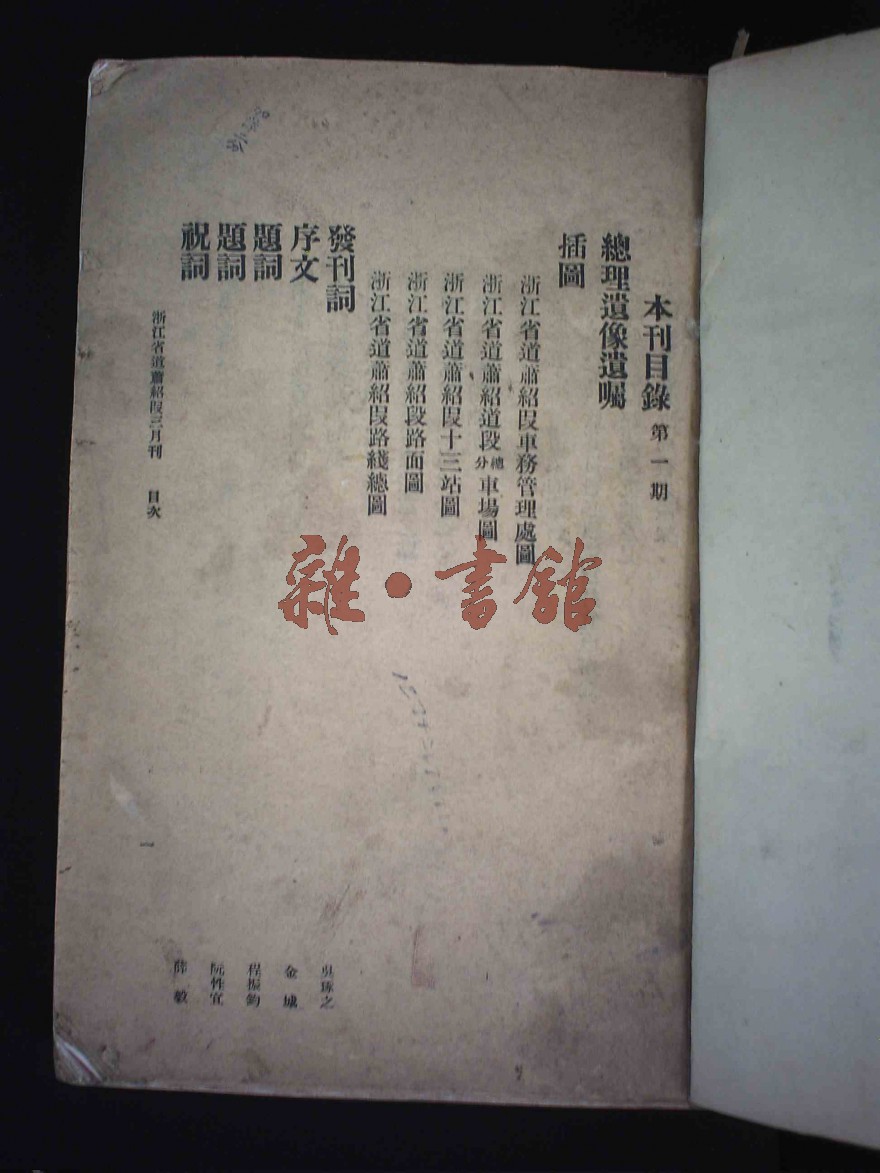 本刊目錄 第一期
總理遺像遺囑
插圖
浙江省道蕭紹段車務管理處圖
浙江省道蕭紹道段總分車場圖
浙江省道蕭紹段十三站圖
浙江省道蕭紹段路面圖
浙江省道蕭紹段路綫總圖
發刊詞 吳琢之
序文 金城
題詞 程振鈞
題詞 阮性宜
祝詞 薛毅
浙江省道蕭紹段三月刊 目次 一
雜·書館